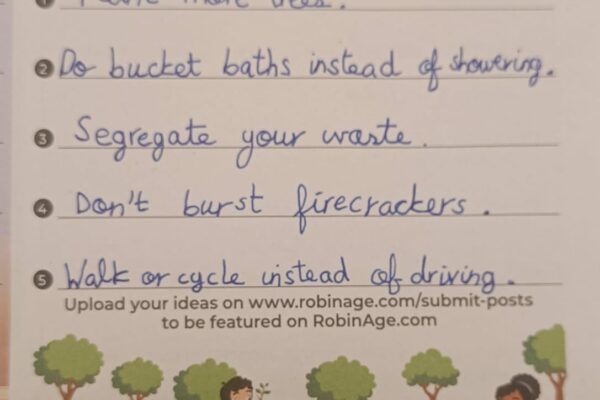 1 Plant more trees.
2 Do bucket baths instead of showering.
3 Segregate your waste.
4 Don't burst firecrackers.
5 Walk or cycle instead of driving.
Upload your ideas on www.robinage.com/submit-posts
to be featured on RobinAge.com